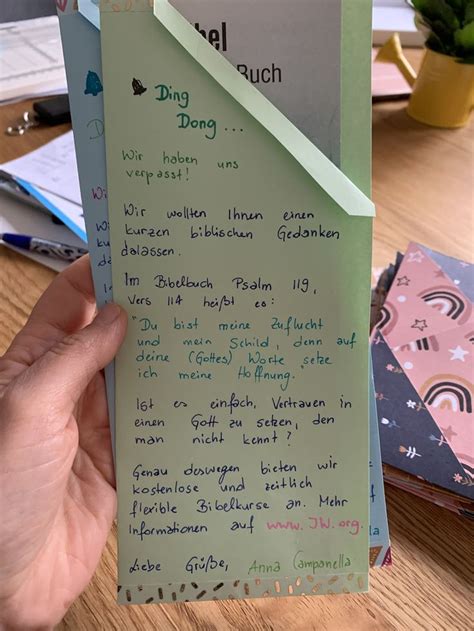 bel
Buch
Ding
Dong...
Wir haben uns
verpasst!
Wir wollten Ihnen einen
kurzen biblischen Gedanken
dalassen.
Im Bibelbuch Psalm 119,
Vers 114 heißt es:
"Du bist meine Zuflucht
und mein Schild, denn auf
deine (Gottes) Worte setze
ich meine Hoffnung."
Ist es einfach, Vertrauen in
einen Gott zu setzen, den
man nicht kennt?
Genau deswegen bieten wir
kostenlose und zeitlich
flexible Bibelkurse an. Mehr
Informationen auf www.JW.org.
Liebe Grüße, Anna Campanella